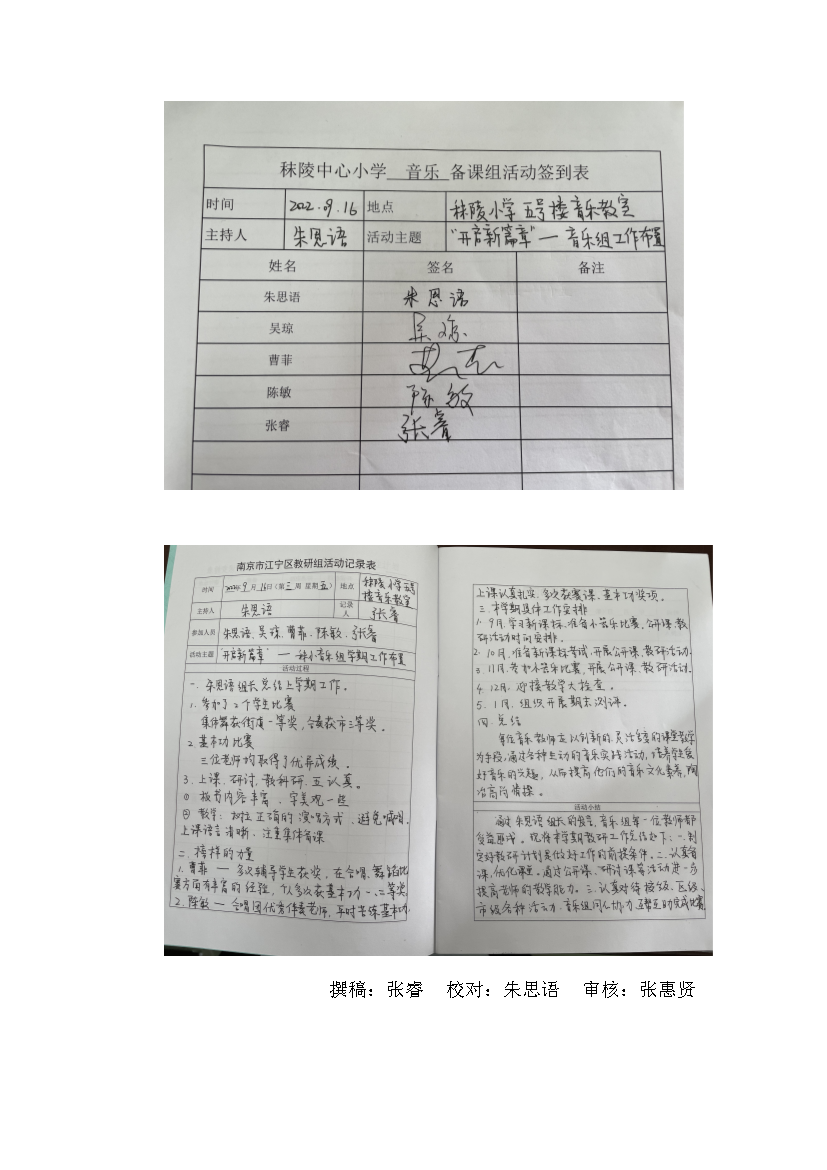 秣陵中心小学 音乐 备课组活动签到表
时间 2022.09.16 地点 秣陵小学五号楼音乐教室
主持人 朱思语 活动主题 “开启新篇章”— 音乐组工作布置
姓名 签名 备注
朱思语 朱思语
吴琼 吴琼
曹菲
陈敏 陈敏
张睿 张睿
南京市江宁区教研组活动记录表
时间 2022年9月16日(第三周 星期五) 地点 秣陵小学五号楼音乐教室
主持人 朱思语 记录人 张睿
参加人员 朱思语、吴琼、曹菲、陈敏、张睿
活动主题 “开启新篇章”— 秣小音乐组学期工作布置
活动过程
一、朱思语组长总结上学期工作。
1. 参加了2个学生比赛
集体舞获街道一等奖,合奏获市三等奖。
2. 基本功比赛
三位老师均取得了优异成绩。
3. 上课、研讨、教科研、互认真。
① 板书内容丰富、字美观一些
② 教学:树立正确的演唱方式、避免喊唱。
上课语言清晰、注重集体备课
二、榜样的力量
1. 曹菲 — 多次辅导学生获奖,在合唱、舞蹈比
赛方面有丰富的经验,个人多次获基本功一、二等奖
2. 陈敏 — 合唱团优秀伴奏老师,平时苦练基本功,
上课认真扎实,多次获赛课、基本功奖项。
三、本学期具体工作安排
1. 9月,学习新课标、准备小音乐比赛、公开课、教
研活动时间安排。
2. 10月,准备新课标考试、开展公开课、教研活动。
3. 11月,参加小音乐比赛,开展公开课、教研活动。
4. 12月,迎接教学大检查。
5. 1月,组织开展期末测评。
四、总结
每位音乐教师应以创新的、灵活多变的课堂教学
为手段,通过各种生动的音乐实践活动,培养学生爱
好音乐的兴趣,从而提高他们的音乐文化素养,陶
冶高尚情操。
活动小结
通过朱思语组长的发言,音乐组每一位教师都
受益匪浅。现将本学期教研工作总结如下:一、制
定好教研计划是做好工作的前提条件。二、认真备
课,优化课堂。通过公开课、研讨课等活动进一步
提高老师的教学能力。三、认真对待校级、区级、
市级各种活动,音乐组同心协力、互帮互助完成比赛。
撰稿:张睿 校对:朱思语 审核:张惠贤